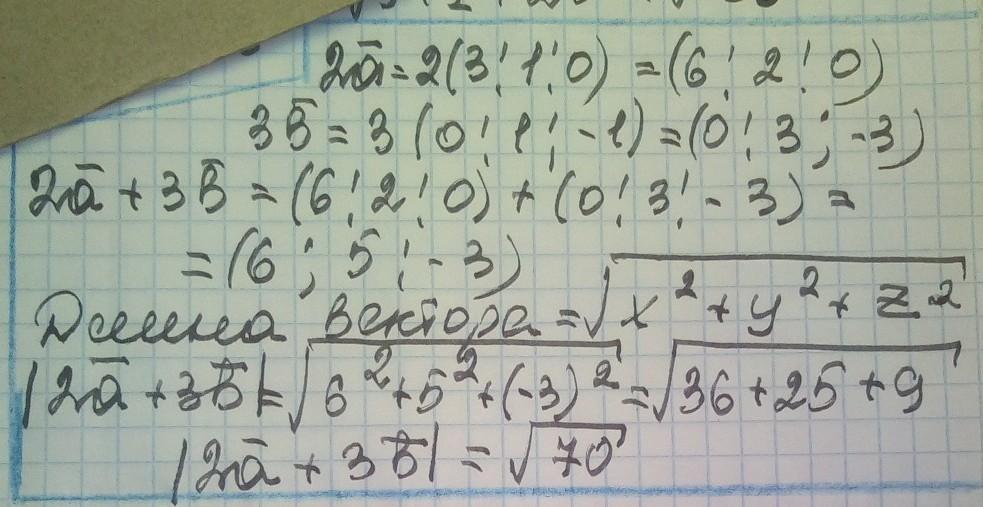 2a̅ = 2(3; 1; 0) = (6; 2; 0)
3b̅ = 3(0; 1; -1) = (0; 3; -3)
2a̅ + 3b̅ = (6; 2; 0) + (0; 3; -3) =
= (6; 5; -3)
Длина вектора = √(x² + y² + z²)
|2a̅ + 3b̅| = √(6² + 5² + (-3)²) = √(36 + 25 + 9)
|2a̅ + 3b̅| = √70